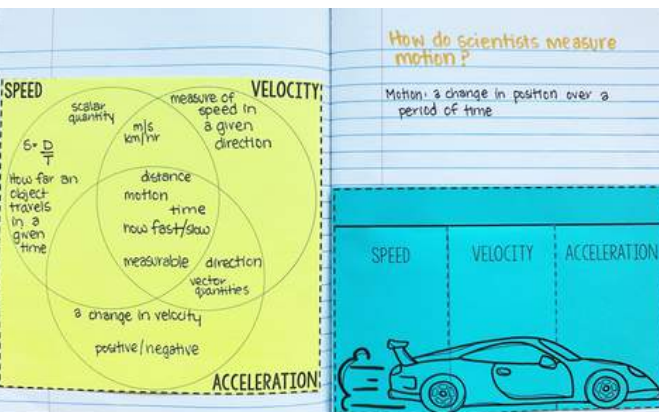 SPEED
VELOCITY
scalar
quantity
S= D
T
How far an
object
travels
in a
given
time
m/s
km/hr
measure of
speed in
a given
direction
distance
motion
time
how fast/slow
measurable
direction
vector
quantities
a change in velocity
positive/negative
ACCELERATION
How do scientists measure
motion?
Motion: a change in position over a
period of time
SPEED
VELOCITY
ACCELERATION